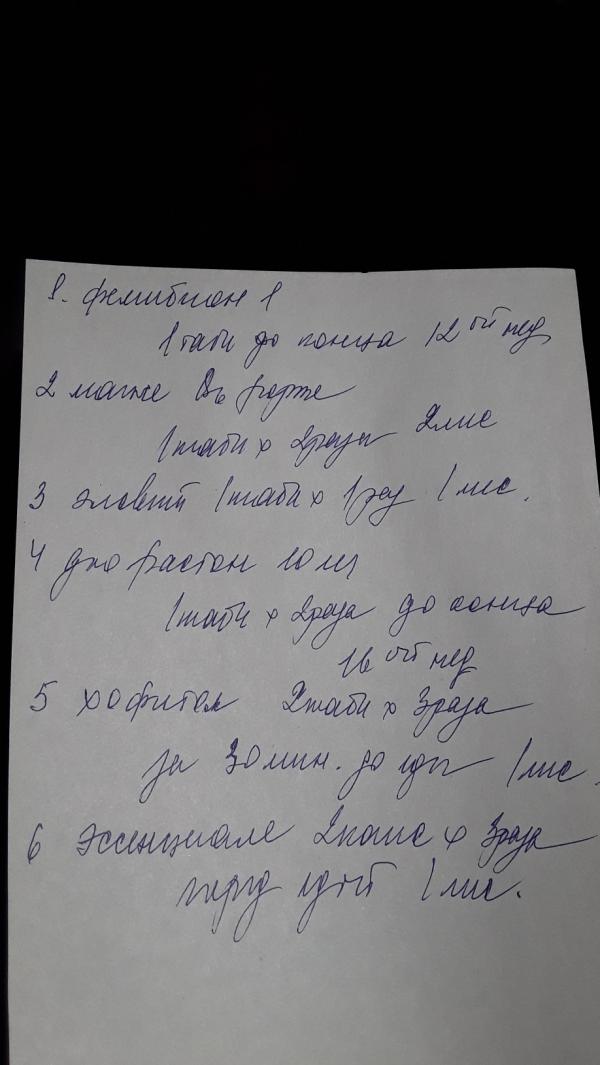 1. Фемибион 1
1 табл до конца 12ой нед
2 магне B6 форте
1 табл x 2 раза 2 мес
3 элевит 1 табл x 1 раз 1 мес.
4 дюфастон 10 мг
1 табл x 2 раза до конца
16ой нед
5 хофитол 2 табл x 3 раза
за 30 мин. до еды 1 мес.
6 эссенциале 2 капс x 3 раза
перед едой 1 мес.